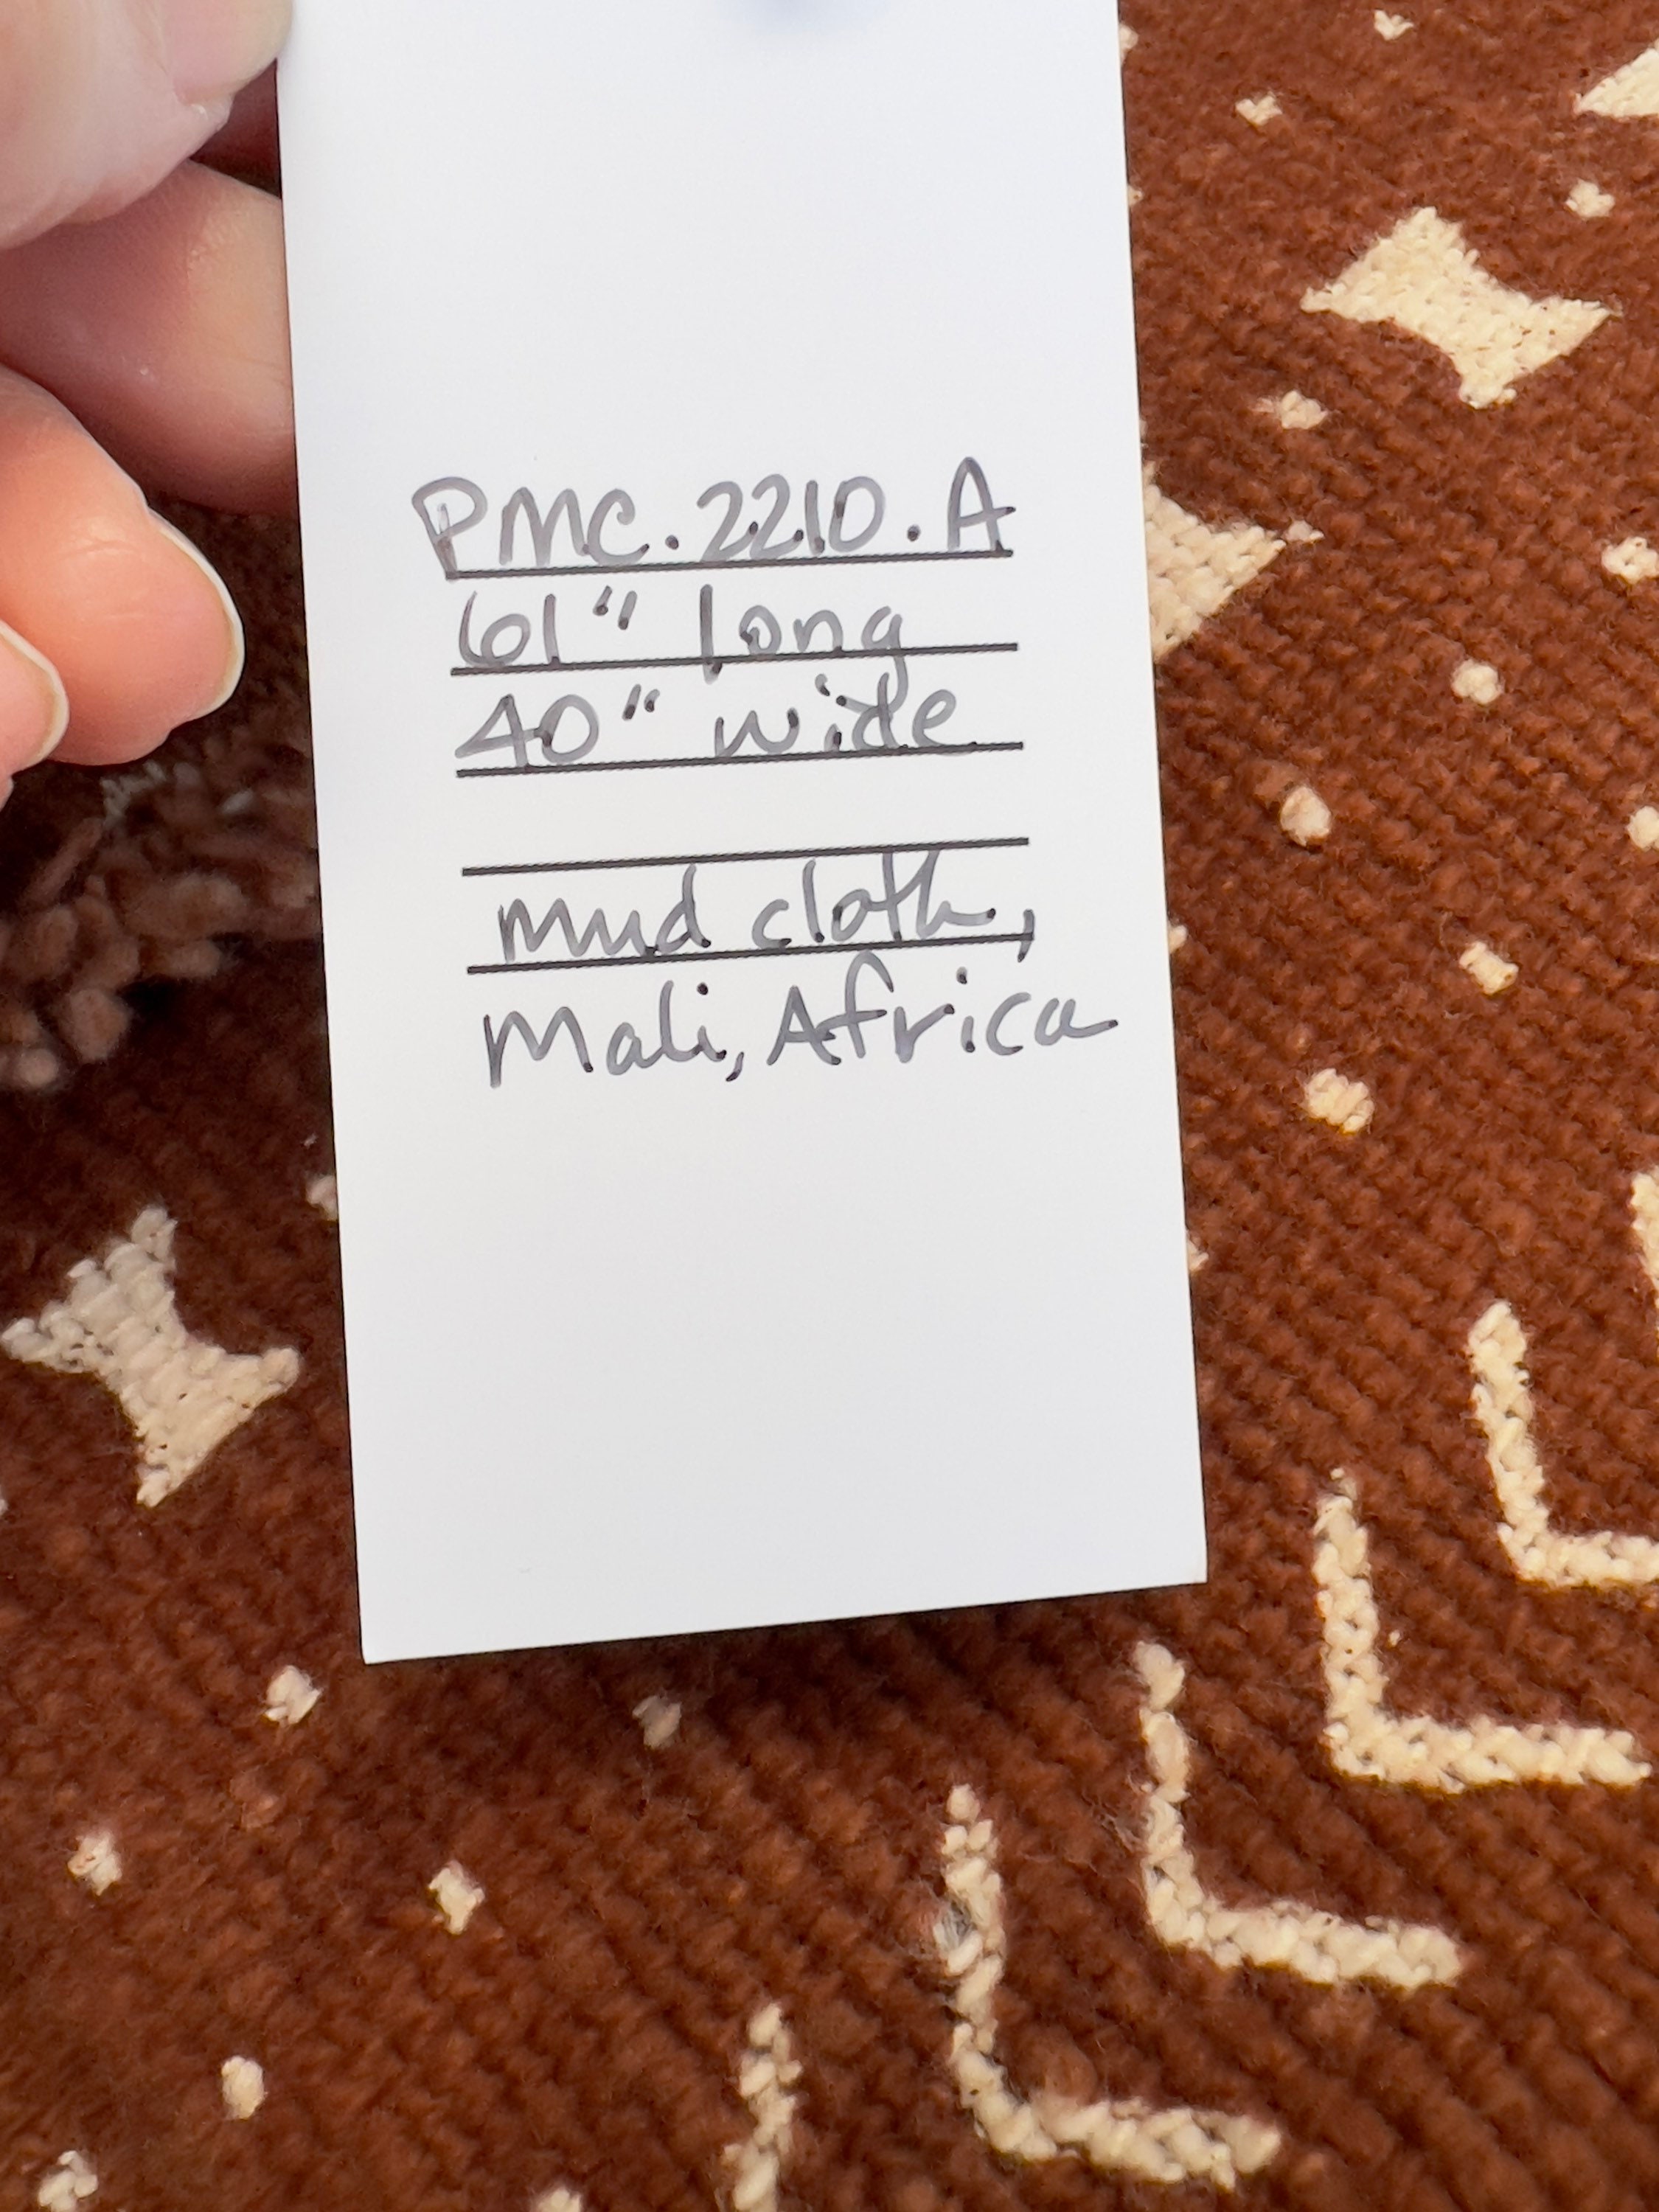 PMC.2210.A
61" long
40" wide
mud cloth,
Mali, Africa